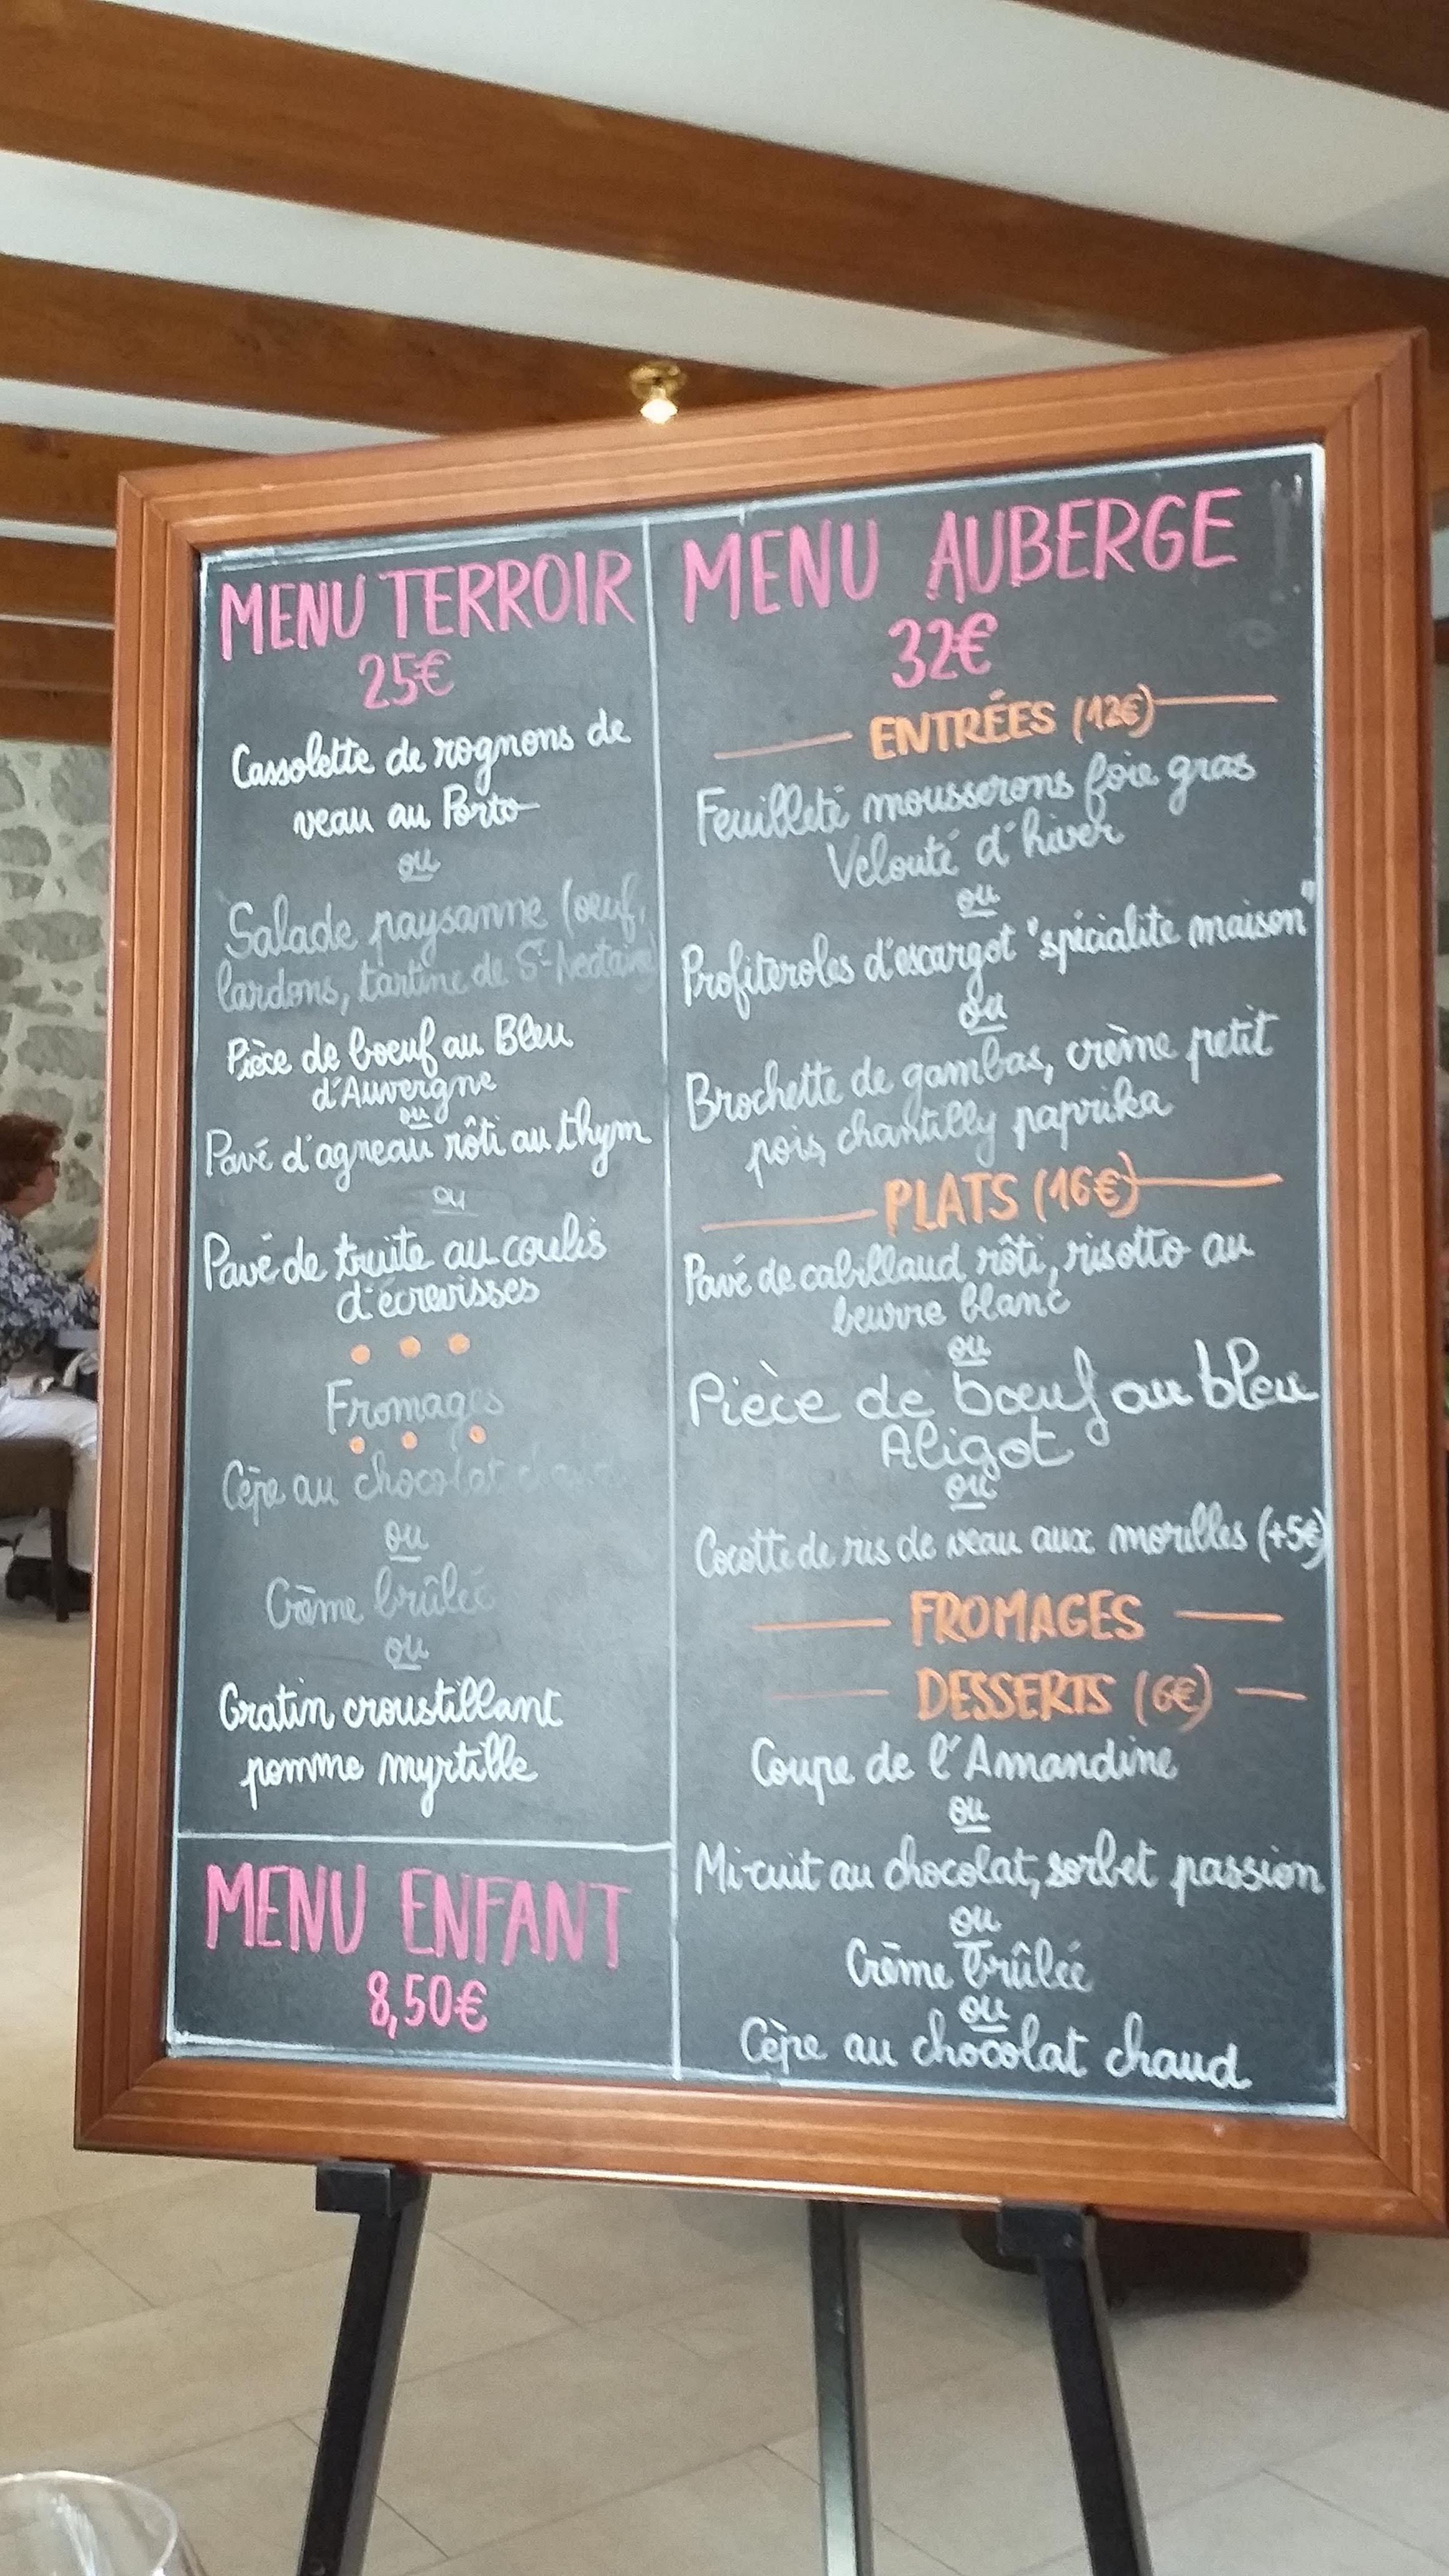 MENU TERROIR
25€
Cassolette de rognons de
veau au Porto
ou
Salade paysanne (oeuf,
lardons, tartine de St-Nectaire)
Pièce de boeuf au Bleu
d'Auvergne
ou
Pavé d'agneau rôti au thym
ou
Pavé de truite au coulis
d'écrevisses
Fromages
Cèpe au chocolat chaud
ou
Crème brûlée
ou
Gratin croustillant
pomme myrtille
MENU ENFANT
8,50€
MENU AUBERGE
32€
ENTRÉES (12€)
Feuilleté mousserons foie gras
Velouté d'hiver
ou
Profiteroles d'escargot "spécialité maison"
ou
Brochette de gambas, crème petit
pois, chantilly paprika
PLATS (16€)
Pavé de cabillaud rôti, risotto au
beurre blanc
ou
Pièce de boeuf au bleu
Aligot
ou
Cocotte de ris de veau aux morilles (+5€)
FROMAGES
DESSERTS (6€)
Coupe de l'Amandine
ou
Mi-cuit au chocolat, sorbet passion
ou
Crème brûlée
ou
Cèpe au chocolat chaud